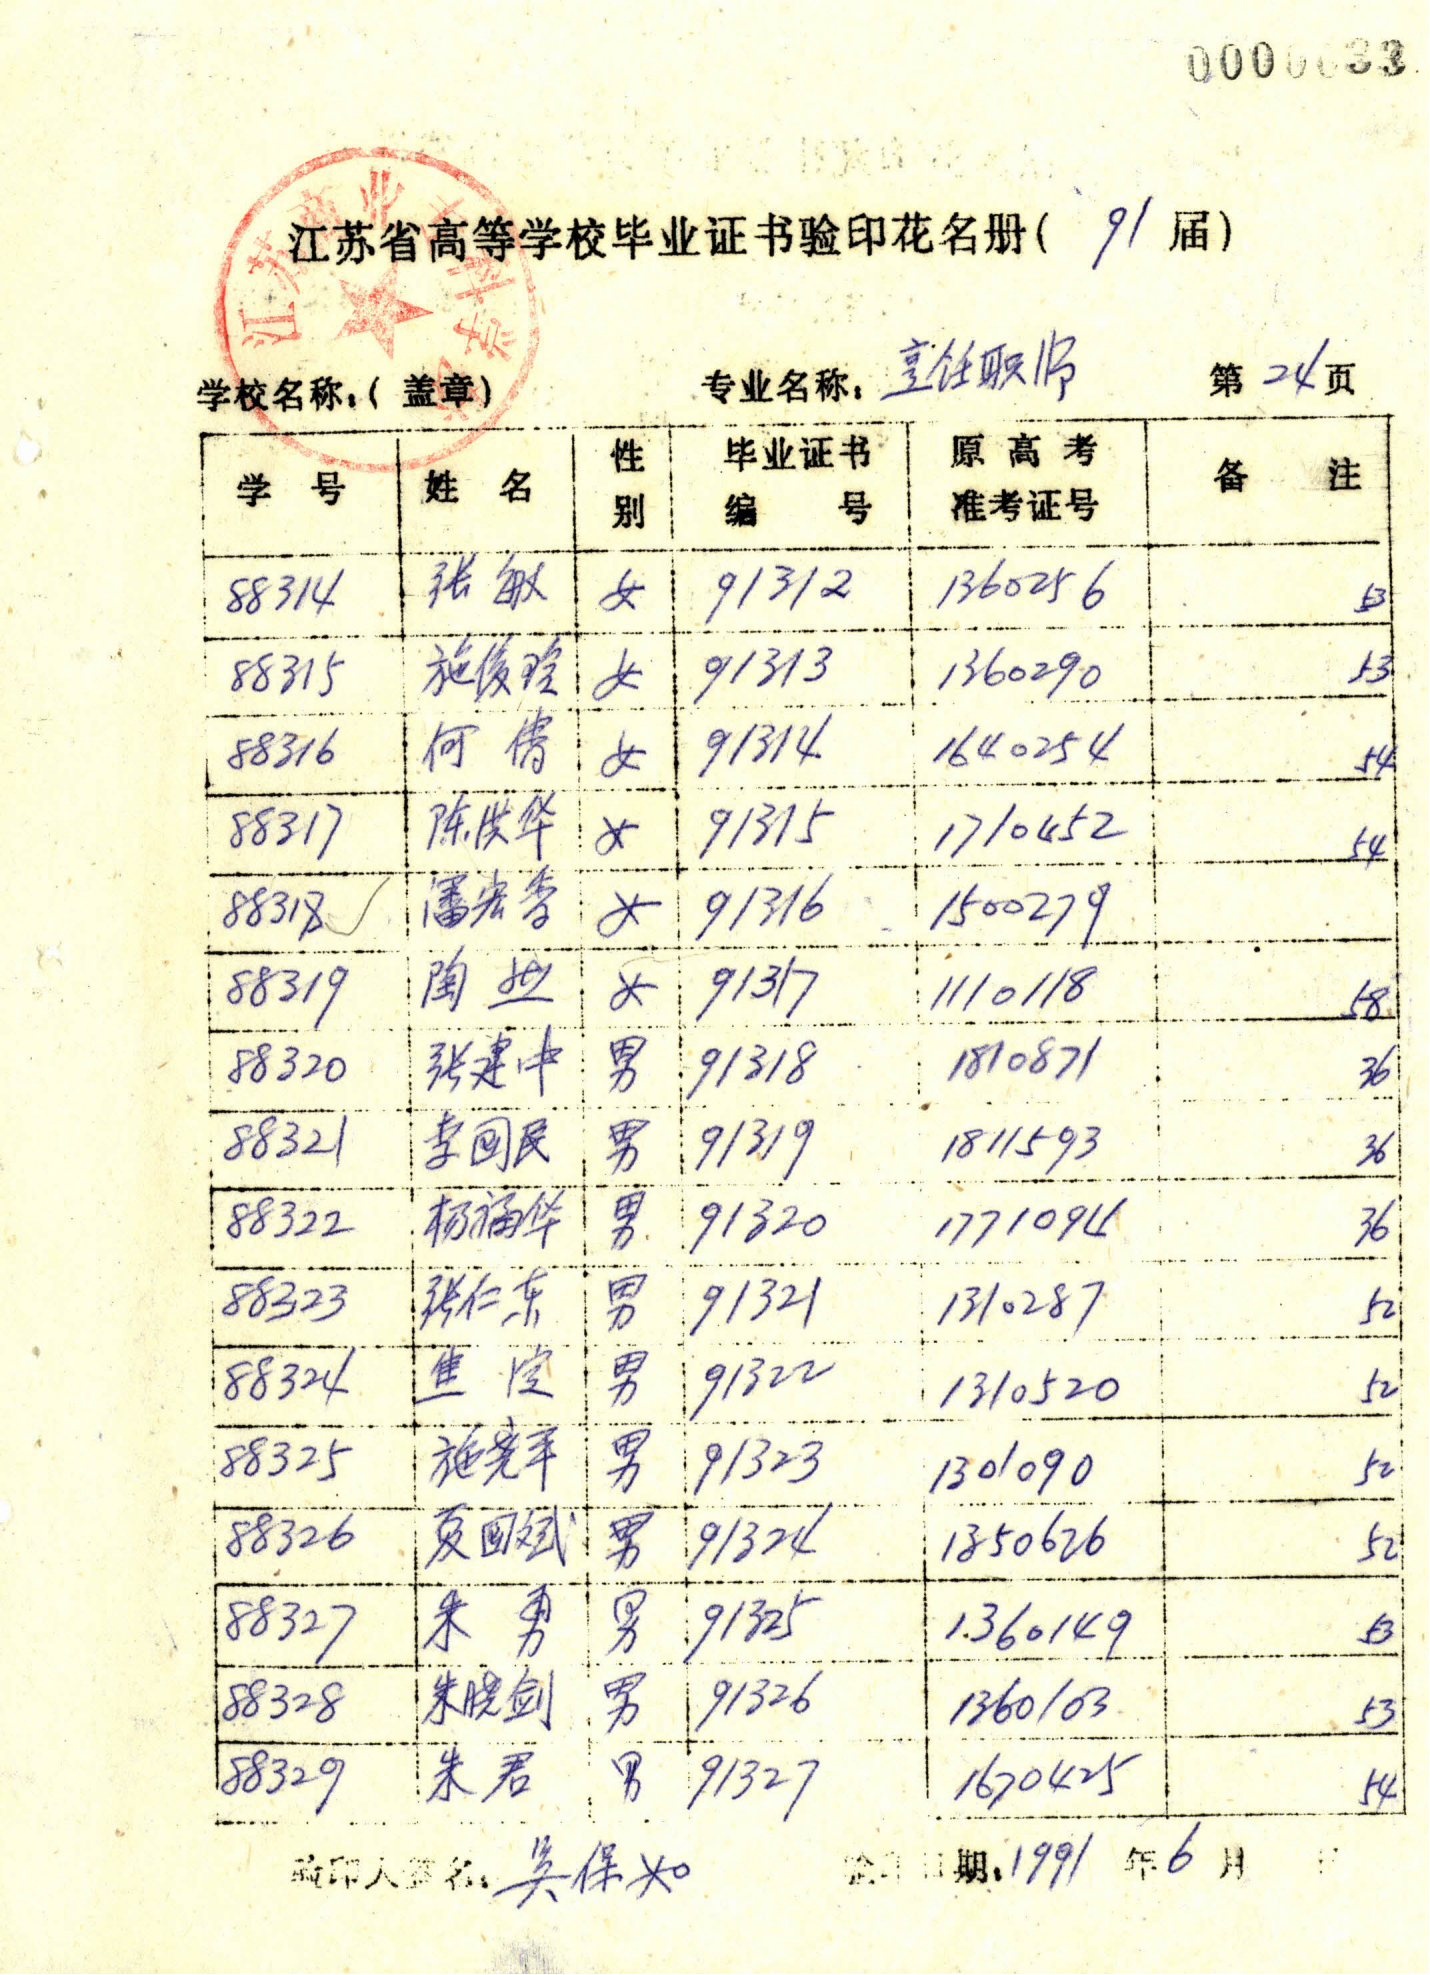 0000033
江苏省高等学校毕业证书验印花名册( 91 届)
学校名称:(盖章) 专业名称: 烹饪职师 第 24 页
学号 姓名 性别 毕业证书编号 原高考准考证号 备注
88314 张敏 女 91312 1360256 53
88315 施俊 女 91313 1360290 53
88316 何倩 女 91314 1640254 54
88317 陈洪华 女 91315 1710452 54
88318 潘宏 女 91316 1500279
88319 陶然 女 91317 1110118 58
88320 张建中 男 91318 1810871 36
88321 李国民 男 91319 1811593 36
88322 杨福华 男 91320 1771094 36
88323 张仁东 男 91321 1310287 52
88324 焦 男 91322 1310520 52
88325 施尧平 男 91323 1301090 52
88326 夏国斌 男 91324 1350626 52
88327 朱勇 男 91325 1360149 53
88328 朱晓剑 男 91326 1360103 53
88329 朱君 男 91327 1670425 54
验印人签名: 吴保如 验印日期: 1991 年 6 月